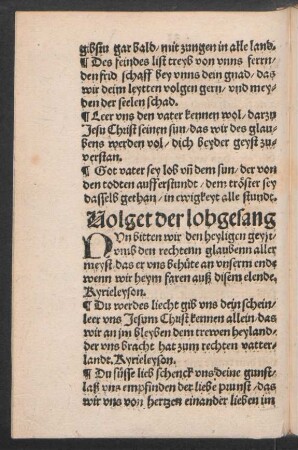 gibstu gar bald/mit zungen in alle land.
¶ Des feindes list treyb von vnns ferrn/
den frid schaff bey vnns dein gnad/das
wir deim leytten volgen gern/vnd mey-
den der seelen schad.
¶ Leer vns den vater kennen wol/darzu
Jesu Christ seinen sun/das wir des glau-
bens werden vol/dich beyder geyst zu-
verstan.
¶ Got vater sey lob vñ dem sun/der von
den todten aufferstund/dem tröster sey
dasselb gethan/in ewigkeyt alle stunde.
Volget der lobgesang
NVn bitten wir den heyligen geyst
vmb den rechtenn glauben aller
meyst/das er vns behüte an vnserm ende
wenn wir heym faren auß disem elende.
Kyrieleyson.
¶ Du werdes liecht gib vns dein schein/
leer vns Jesum Christ kennen allein/das
wir an jm bleyben dem trewen heyland/
der vns bracht hat zum rechten vatter-
landt. Kyrieleyson.
¶ Du süsse lieb schenck vns deine gunst/
laß vns empfinden der liebe prunst/das
wir vns von hertzen einander lieben im